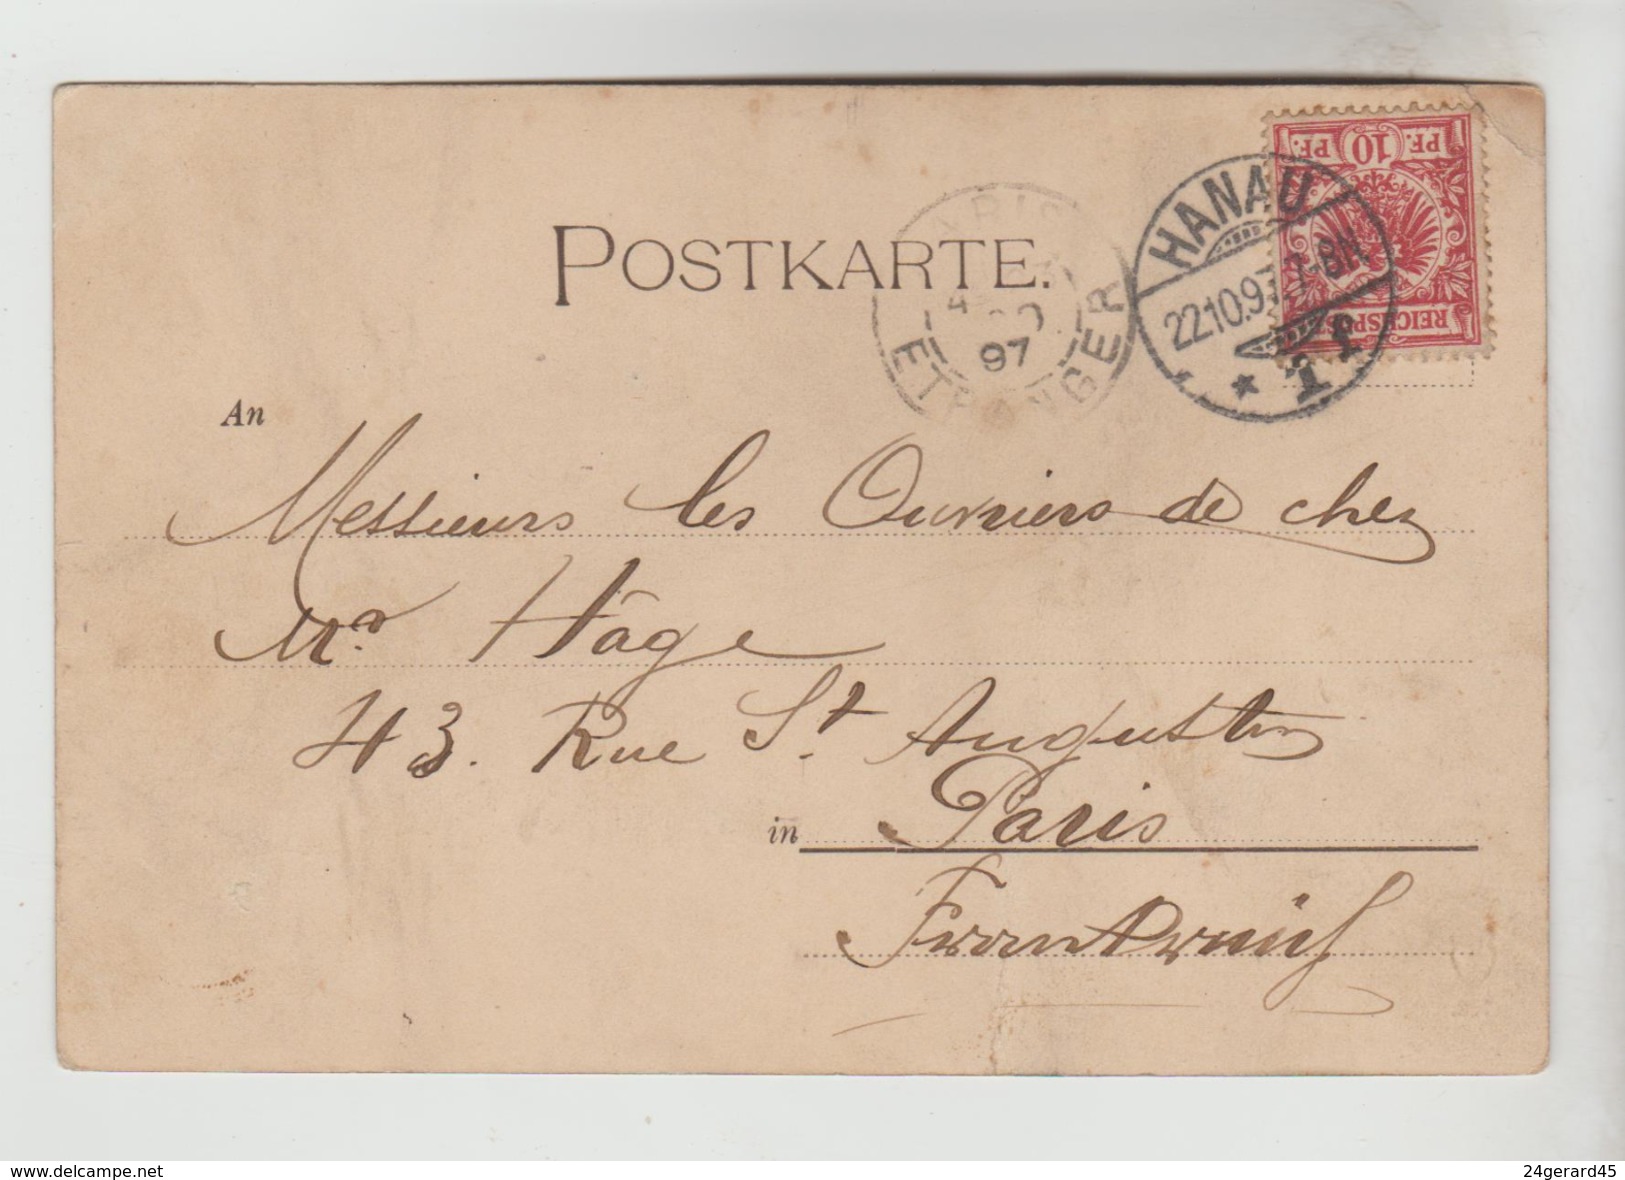 PF. 10 PF.
REICHSPOST
HANAU
22.10.97. 7-8N
PARIS
97
ETRANGER
POSTKARTE.
An
Messieurs les Ouvriers de chez
Mr Häge
43. Rue St. Augustin
in Paris
Frankreich
www.delcampe.net
24gerard45